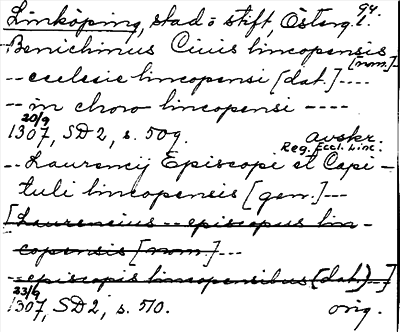 94.
Linköping, stad o stift, Österg. l.
Benichinus Ciuis lincopensis
[nom.]-
-- ecclesie lincopensi [dat.]----
-- in choro lincopensi ----
20/9
1307, SD2, s. 509. avskr.
Reg. Eccl. Linc.
-- Laurencij Episcopi et Capi-
tuli lincopensis [gen.]---
[Laurencius -- episcopus lin-
copensis [nom.]---
-- episcopis lincopensibus (dat.)--]
23/9
1307, SD2, s. 510. orig.